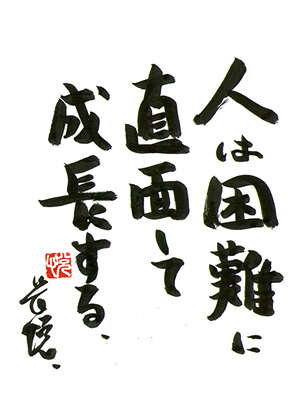 人は困難に
直面して
成長する、